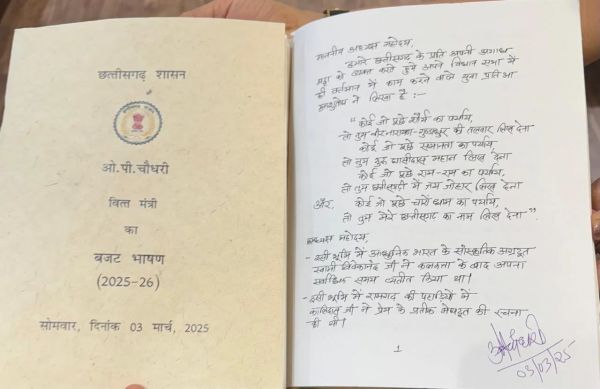 छत्तीसगढ़ शासन
ओ.पी.चौधरी
वित्त मंत्री
का
बजट भाषण
(2025-26)
सोमवार, दिनांक 03 मार्च, 2025
माननीय अध्यक्ष महोदय,
हमारे छत्तीसगढ़ के प्रति अपनी अगाध
श्रद्धा को व्यक्त करते हुये अपने विधान सभा में
ही वर्तमान में काम करने वाले युवा
ने लिखा है :-
"कोई जो पूछे शौर्य का पर्याय,
तो तुम वीरनारायण- की तलवार लिख देना
कोई जो पूछे समानता का पर्याय,
तो तुम गुरु घासीदास महान लिख देना
कोई जो पूछे राम-राम का पर्याय,
तो तुम छत्तीसगढ़ी में जय जोहार लिख देना
और, कोई जो पूछे चारों धाम का पर्याय,
तो तुम मेरे छत्तीसगढ़ का नाम लिख देना".
अध्यक्ष महोदय,
- इसी भूमि में आधुनिक भारत के सांस्कृतिक अग्रदूत
स्वामी विवेकानंद जी ने कलकत्ता के बाद अपना
सर्वाधिक समय व्यतीत किया था।
- इसी भूमि में रामगढ़ की पहाड़ियों में
कालिदास जी ने प्रेम के प्रतीक मेघदूत की रचना
की थी।
1
03/03/25